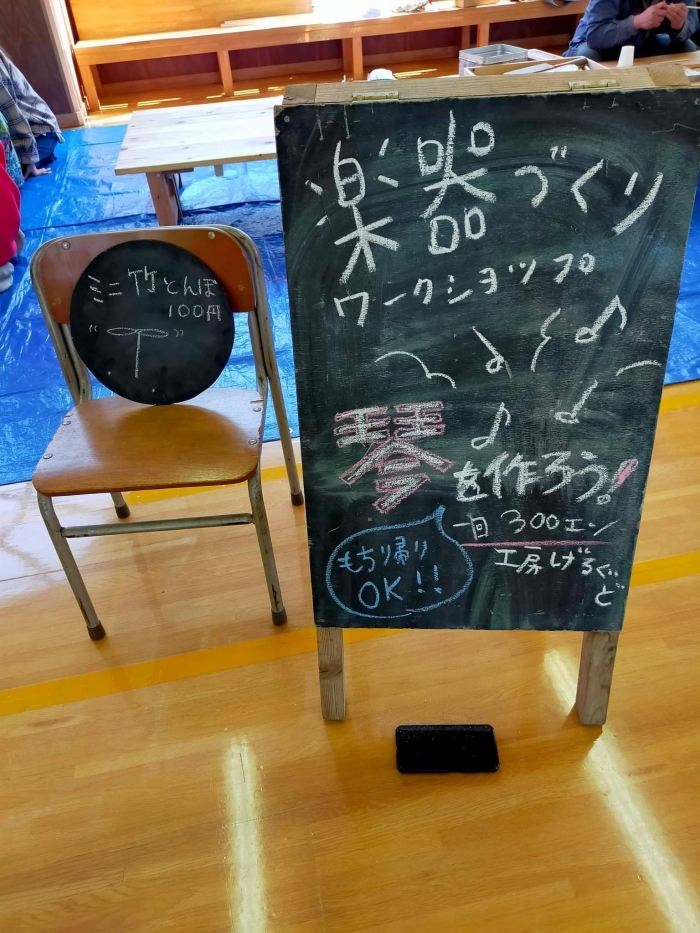 ミニ竹とんぼ
100円
楽器づくり
ワークショップ
琴
を作ろう!
一回 300エン
もちり帰り
OK!!
工房げ
ど